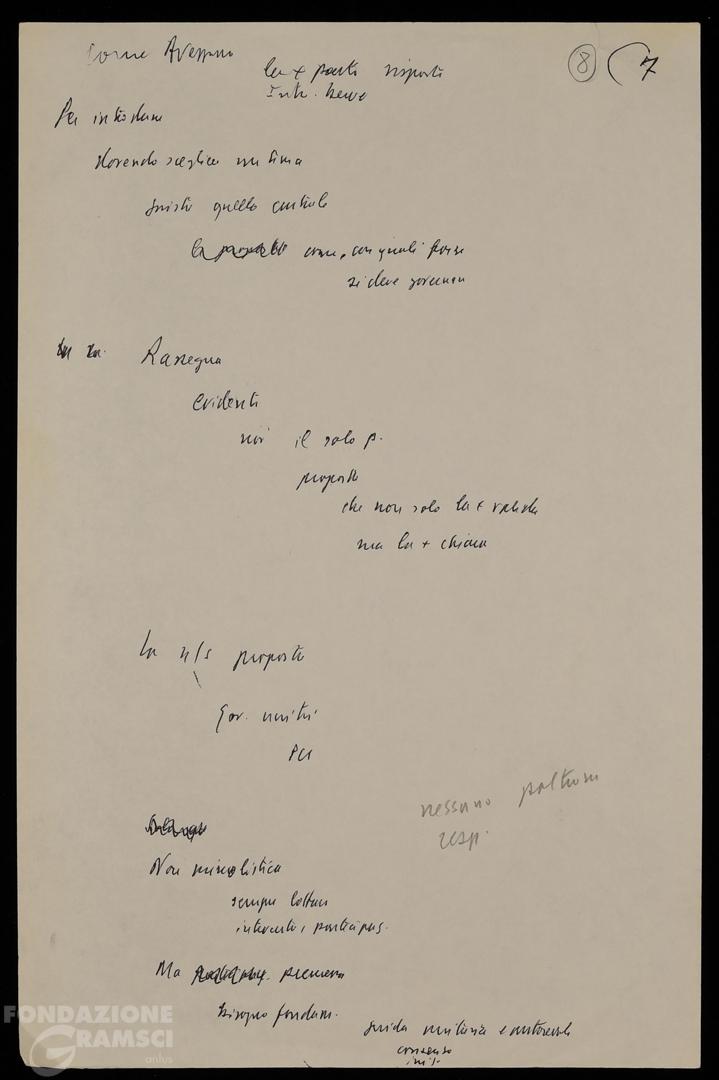 Come Avezzano
la + parte risposte
8 7
Intr. breve
Per intodurre
dovendo scegliere un tema
giusto quello centrale
la come, con quali forze
si deve governare
Rassegna
evidente
noi il solo p.
proposta
che non solo la + valida
ma la + chiara
La n/s proposta
Gov. unità
PCI
nessuno
resp.
Non miracolistica
sempre lottare
intervento, partecipaz.
Ma premessa
bisogno fondam.
guida unitaria e autorevole
consenso